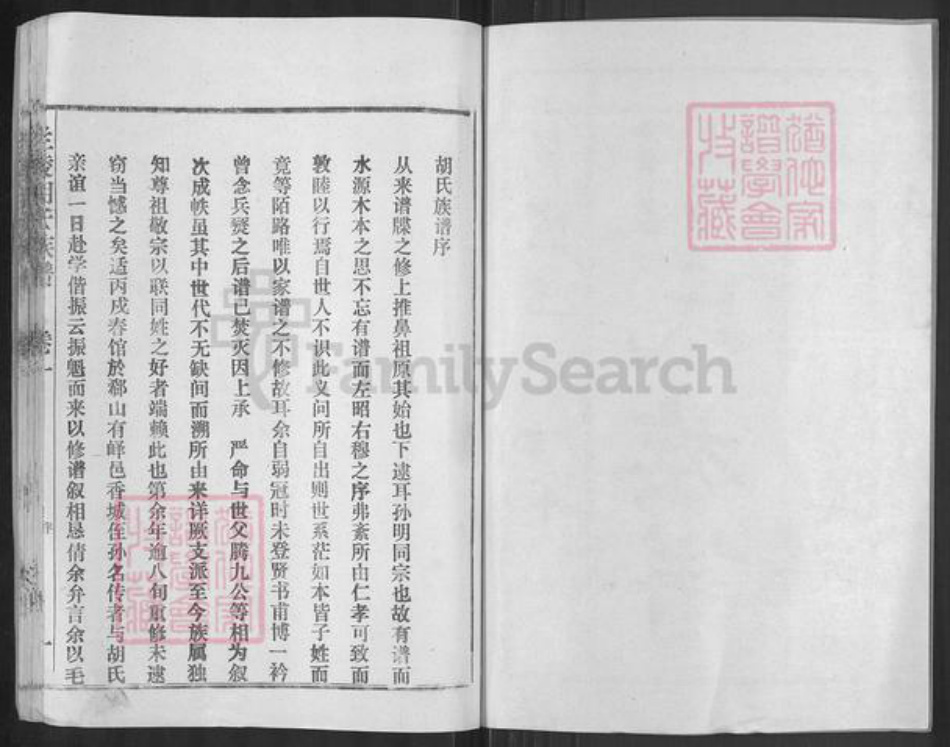 胡氏族谱序
从来谱牒之修上推鼻祖原其始也下逮耳孙明同宗也故有谱而
水源木本之思不忘有谱而左昭右穆之序弗紊所由仁孝可致而
敦睦以行焉自世人不识此义问所自出则世系茫如本皆子姓而
竟等陌路唯以家谱之不修故耳余自弱冠时未登贤书甫博一衿
曾念兵燹之后谱已焚灭因上承 严命与世父腾九公等相为叙
次成帙虽其中世代不无缺间而溯所由来详厥支派至今族属独
知尊祖敬宗以联同姓之好者端赖此也第余年逾八旬重修未逮
窃当憾之矣适丙戌春馆於鄀山有峄邑香城侄孙名传者与胡氏
亲谊一日赴学偕振云振魁而来以修谱叙相恳倩余弁言余以毛
族谱 卷一
序
一
犹他家谱学会收藏
犹他家谱学会收藏
FamilySearch